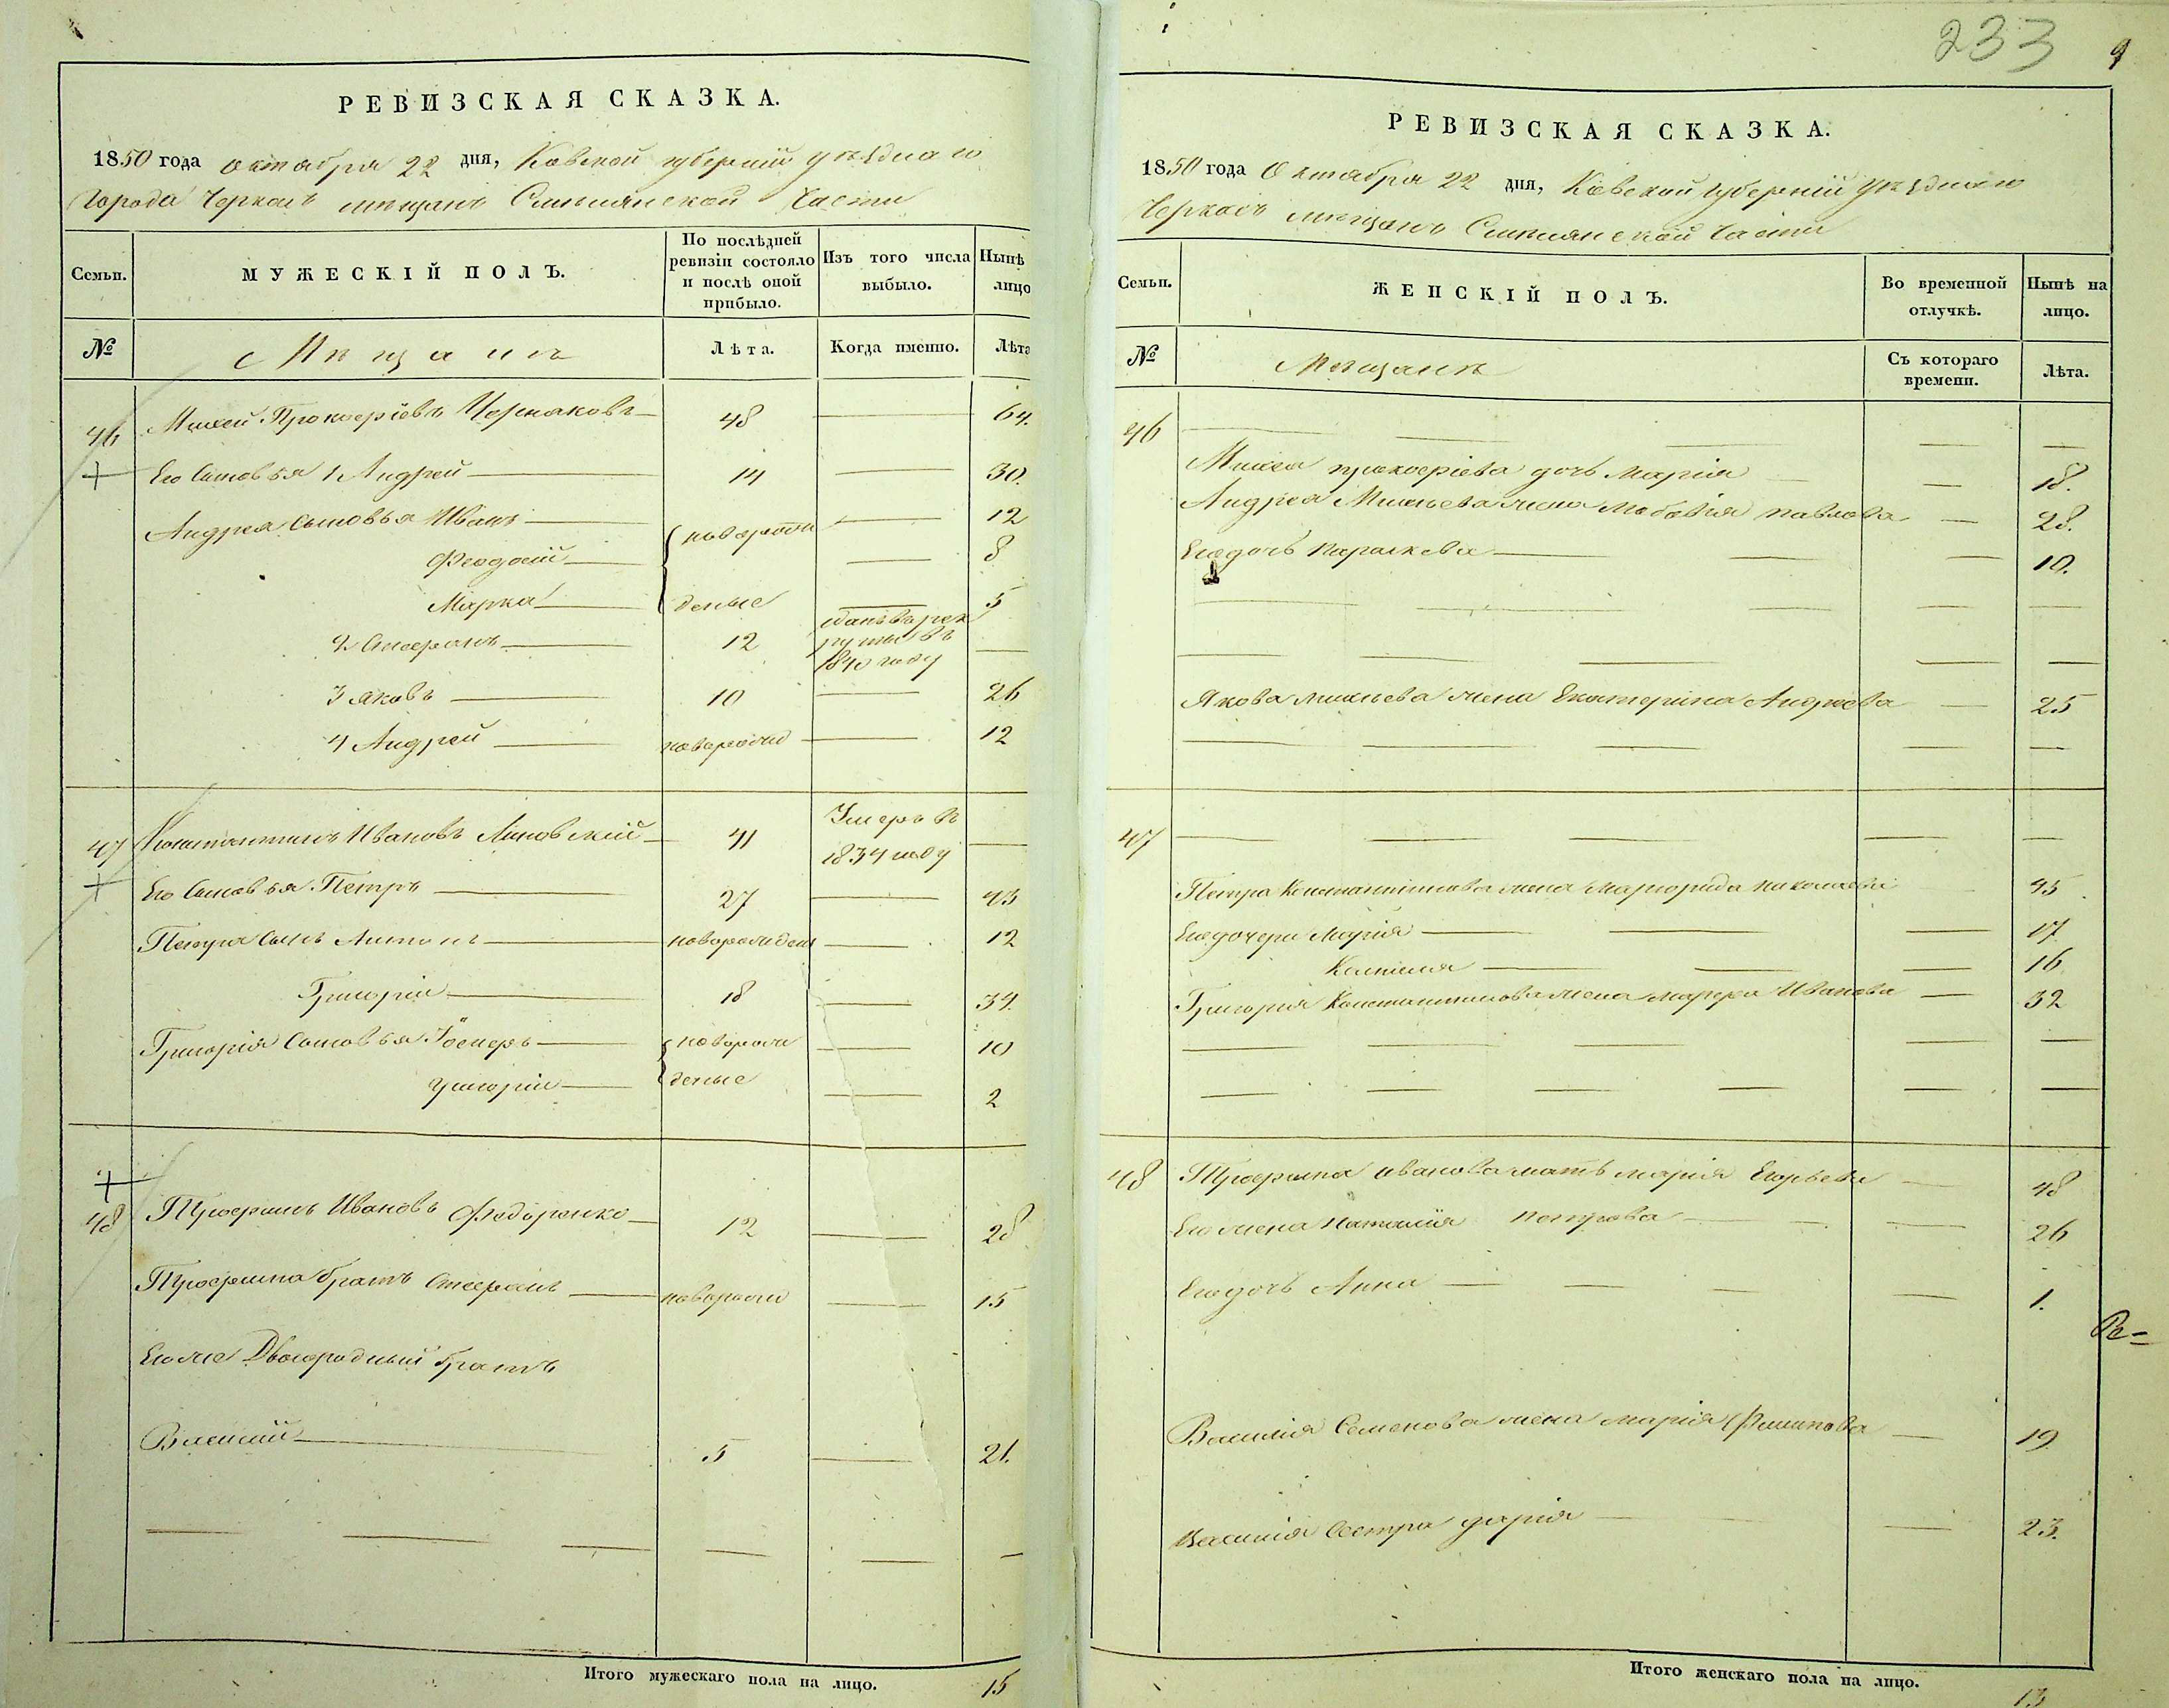 РЕВИЗСКАЯ СКАЗКА.
1850 года октября 22 дня, Кіевской губерніи уѣзднаго
города Черкасъ мѣщанъ Смѣлянской части
Семьи.
МУЖЕСКІЙ ПОЛЪ.
По послѣдней ревизіи состояло и послѣ оной прибыло.
Изъ того числа выбыло.
Нынѣ лицо
№
Мѣщане
Лѣта.
Когда именно.
Лѣта
46 Михей Прокофіевъ 48 64.
Его Сыновья 1 Андрей 14 30.
Андрея Сыновья Иванъ новорож 12
Феодосій 8
Марко деные 5
2 Стефанъ 12 сданъ въ рек
руты въ
1840 году
3 Яковъ 10 26
4 Андрей новорожд 12
47 Константинъ Ивановъ 41 Умеръ въ
1834 году
Его Сыновья Петръ 27 43
Петра Сынъ Антонъ новорожден 12
Григорій 18 34.
Григорія Сыновья Іосифъ новорож 10
Григорій деные 2
48 Трофимъ Ивановъ Федоренко 12 28
Трофима братъ Стефанъ новорожд 15
Его же Двоюродный братъ
Василій 5 21.
Итого мужескаго пола на лицо. 15
233
9
РЕВИЗСКАЯ СКАЗКА.
1850 года Октября 22 дня, Кіевской губерніи уѣзднаго
Черкасъ мѣщанъ Смѣлянской части
Семьи.
ЖЕНСКІЙ ПОЛЪ.
Во временной отлучкѣ.
Нынѣ на лицо.
№
Мѣщане
Съ котораго времени.
Лѣта.
46
Михея прокофіева дочь Марія 18.
Андрея Михѣева жена павлова 28.
Его дочь Параскева 10.
Якова михѣева жена Екатерина Андреева 25
47
Петра Константинова жена Маргорида николаева 45
Его дочери Марія 17
16
Григорія Константинова жена Марфа Иванова 32
48 Трофима иванова мать марія Егорьева 48
Его жена наталія петрова 26
Его дочь Анна 1.
Ре=
Василія Семенова жена марія Филипова 19
Василія Сестра дарія 23.
Итого женскаго пола на лицо.
13